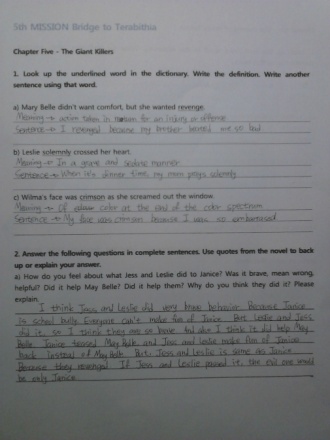 5th MISSION Bridge to Terabithia
Chapter Five - The Giant Killers
1. Look up the underlined word in the dictionary. Write the definition. Write another
sentence using that word.
a) Mary Belle didn't want comfort, but she wanted revenge.
Meaning → action taken in return for an injury or offense
Sentence → I revenged because my brother me so bad
b) Leslie solemnly crossed her heart.
Meaning → In a grave and sedate manner
Sentence → When it's dinner time, my mom prays solemnly
c) Wilma's face was crimson as she screamed out the window.
Meaning → Of color at the end of the color spectrum
Sentence → My face was crimson because I was so embarrassed.
2. Answer the following questions in complete sentences. Use quotes from the novel to back
up or explain your answer.
a) How do you feel about what Jess and Leslie did to Janice? Was it brave, mean wrong,
helpful? Did it help May Belle? Did it help them? Why do you think they did it? Please
explain.
I think Jess and Leslie did very brave behavior. Because Janice
is school bully. Everyone can't make fun of Janice. But Leslie and Jess
did it. So I think they are so brave. And also I think it did help May
Belle. Janice teased May Belle, and Jess and Leslie make fun of Janice
back instead of May Belle. But, Jess and Leslie is same as Janice.
Because they revenged. If Jess and Leslie it, the evil one would
be only Janice.